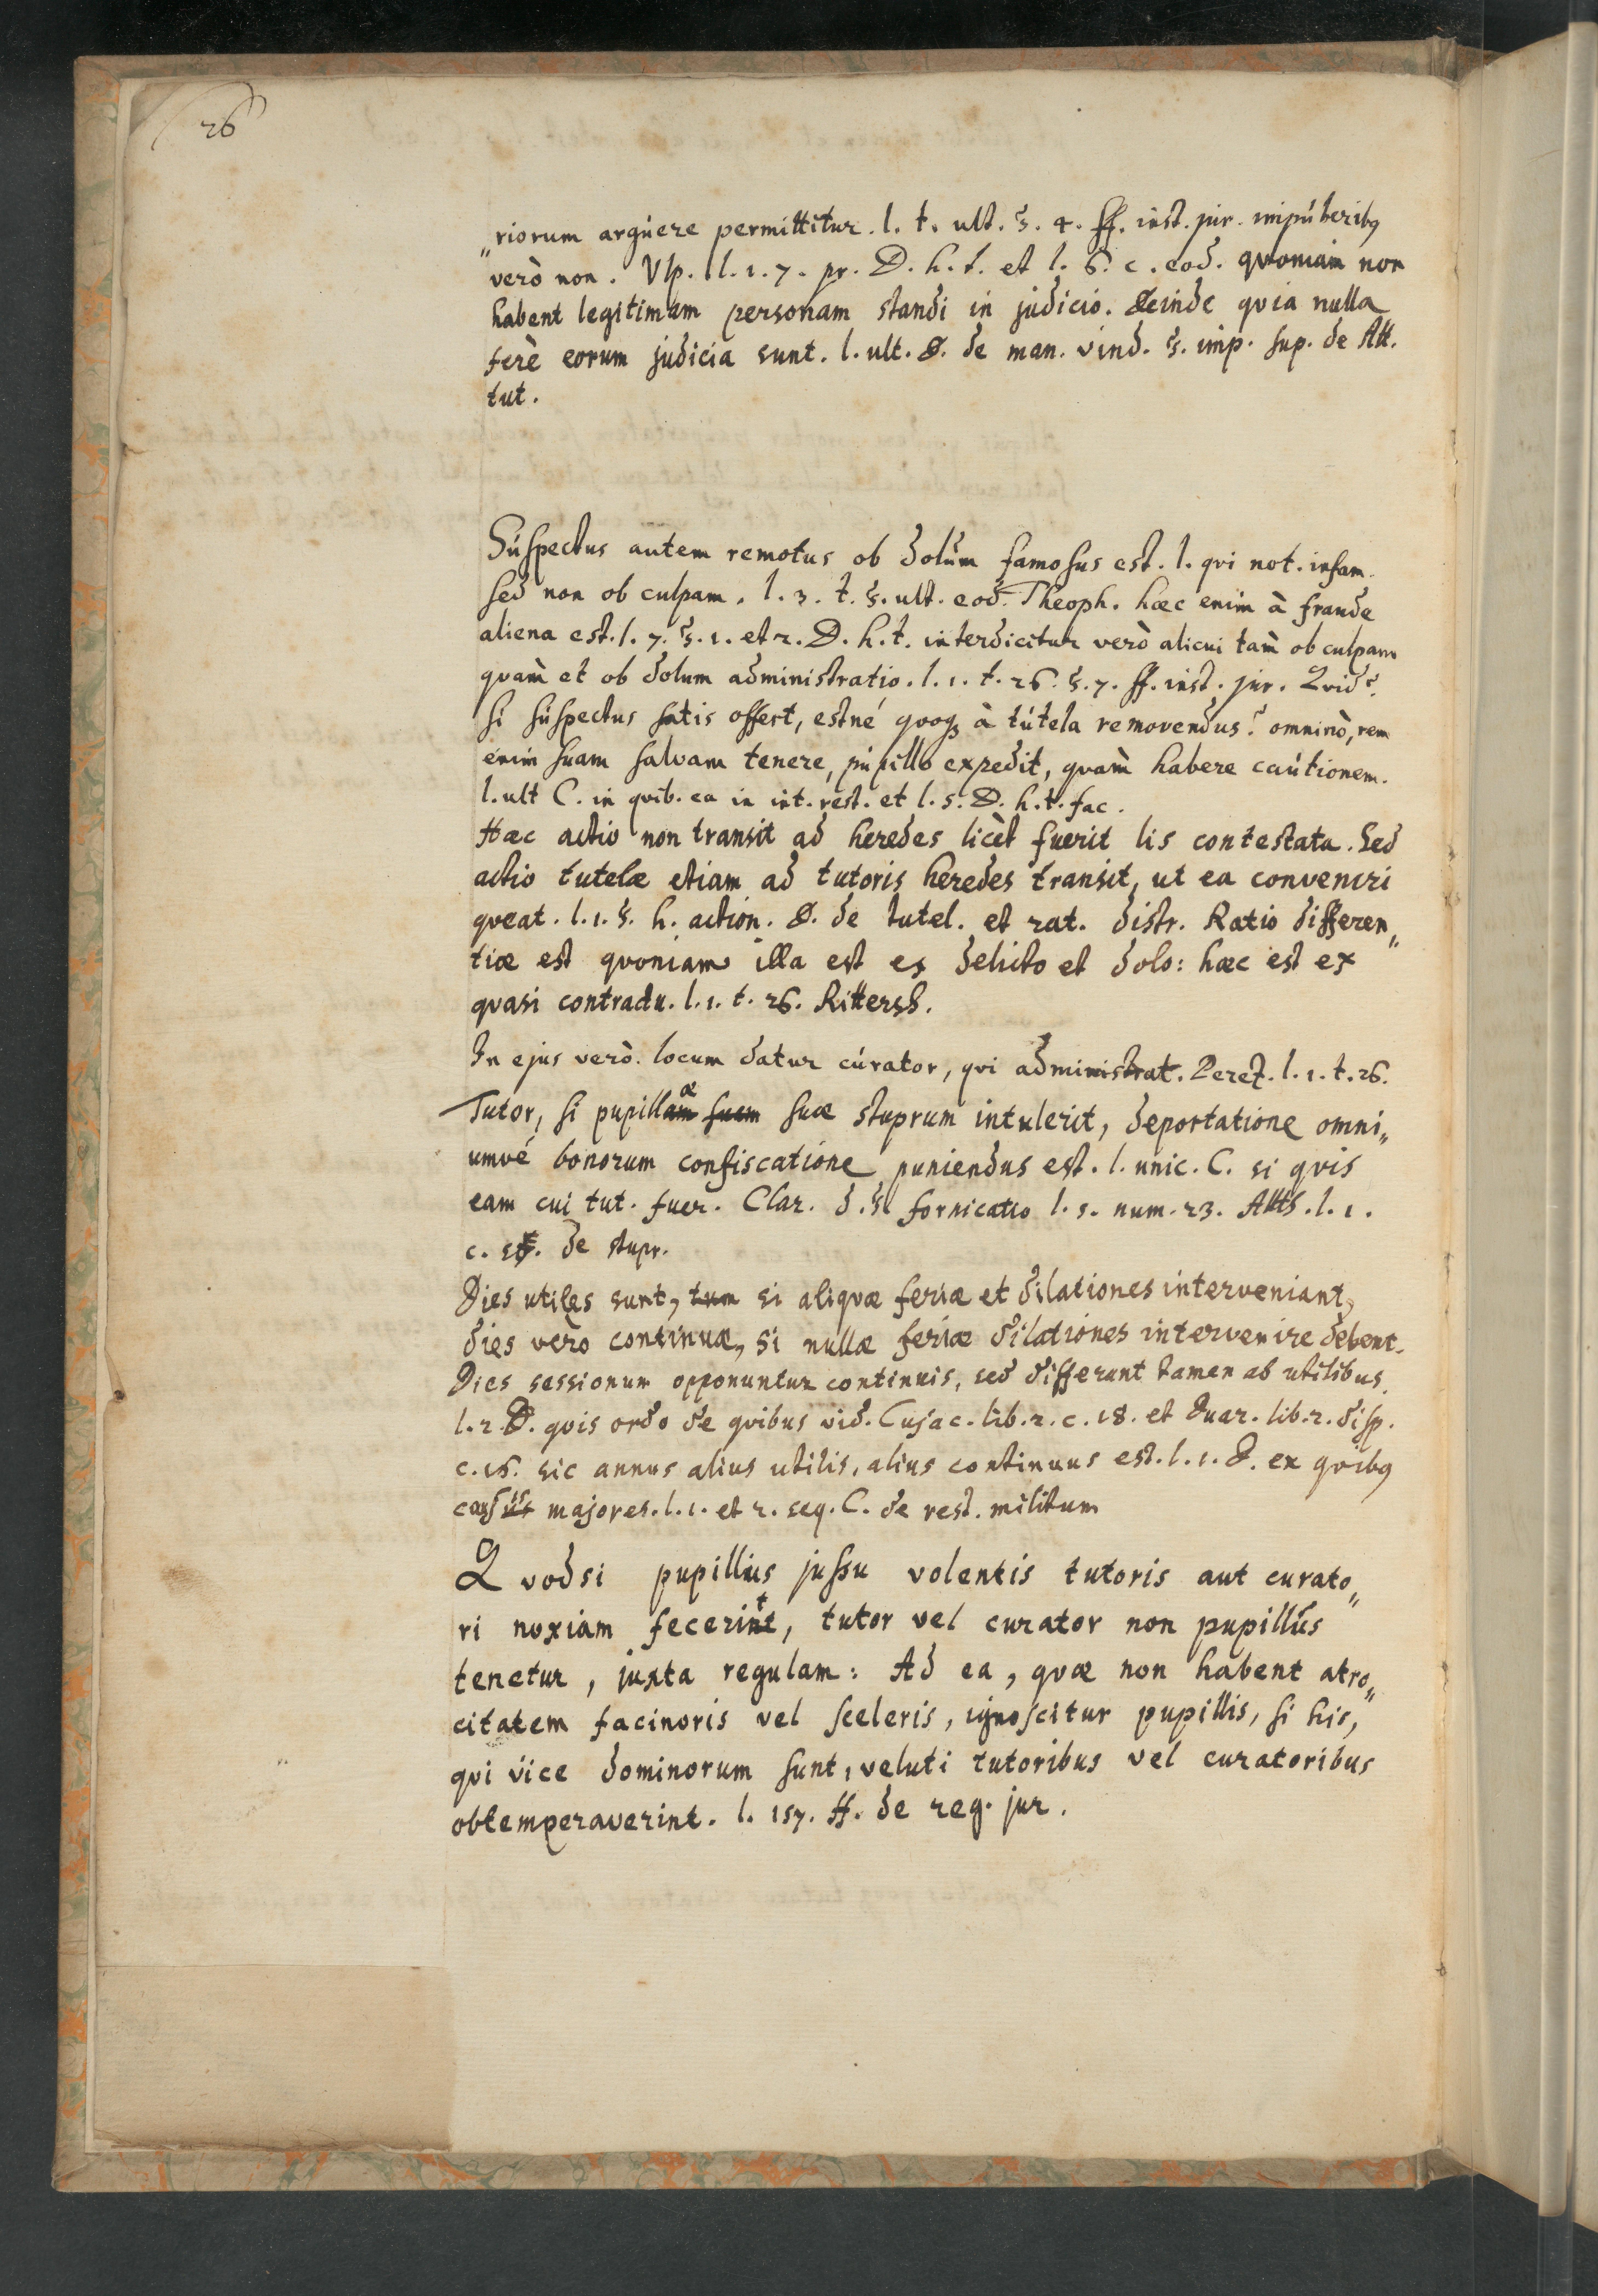 26
„riorum argúere permittitur. l. t. ult. §. 4. ff. inst. jur. impúberibq
verò non. Vlp. l. 1. 7. pr. D. h. t. et l. 6. c. eod. quoniam non
habent legitimam personam standi in judicio. Deinde quia nulla
ferè eorum judicia sunt. l. ult. D. de man. vind. §. imp. sup. de Att.
tut.
Súspectus autem remotus ob dolúm famosus est. l. qui not. infam.
sed non ob culpam. l. 3. t. §. ult. eod. Theoph. hæc enim à fraude
aliena est. l. 7. §. 1. et 2. D. h. t. interdicitur verò alicui tam̀ ob culpam
quam̀ et ob dolum administratio. l. 1. t. 26. §. 7. ff. inst. jur. Quid?
si súspectus satis offert, estné quoq à tútela removendus? omninò, rem
enim suam salvam tenere, pupillo expedit, quam̀ habere caútionem.
l. ult C. in quib. ca in int. rest. et l. 5. D. h. t. fac.
Hæc actio non transit ad heredes licèt fuerit lis contestata. Sed
actio tutelæ etiam ad tutoris heredes transit, ut ea conveniri
queat. l. 1. §. h. action. D. de tutel. et rat. distr. Ratio differen„
tiæ est quoniam illa est ex delicto et dolo: hæc est ex
quasi contractu. l. 1. t. 26. Rittersh.
In ejus verò locum datur cúrator, qui administrat. Perez. l. 1. t. 26.
Tutor, si pupillamæ suam suæ stuprum intulerit, deportatione omni„
umvé bonorum confiscatione puniendus est. l. unic. C. si quis
eam cui tut. fuer. Clar. d. §. fornicatio l. 5. num. 23. Atth. l. 1.
c. de stupr.
Dies utiles sunt, tum si aliquæ feriæ et dilationes interveniant,
dies verò continuæ, si nullæ feriæ dilationes intervenire debent.
Dies sessionum opponuntur continuis, sed differunt tamen ab utilibus.
l. 2 D. quis ordo de quibus vid. Cujac. lib. 2. c. 18. et Duar. lib. 2. disp.
c. 16. sic annus alius utilis, alius continuus est. l. 1. D. ex quibq
causis majores. l. 1. et 2. seq. C. de rest. militum
Quodsi pupillus jussu volentis tutoris aut curato„
ri noxiam fecerint, tutor vel curator non pupillús
tenetur, juxta regulam: Ad ea, quæ non habent atro„
citatem facinoris vel sceleris, ignoscitur pupillis, si his,
qui vice dominorum sunt, veluti tutoribus vel curatoribus
obtemperaverint. l. 157. ff. de reg. jur.